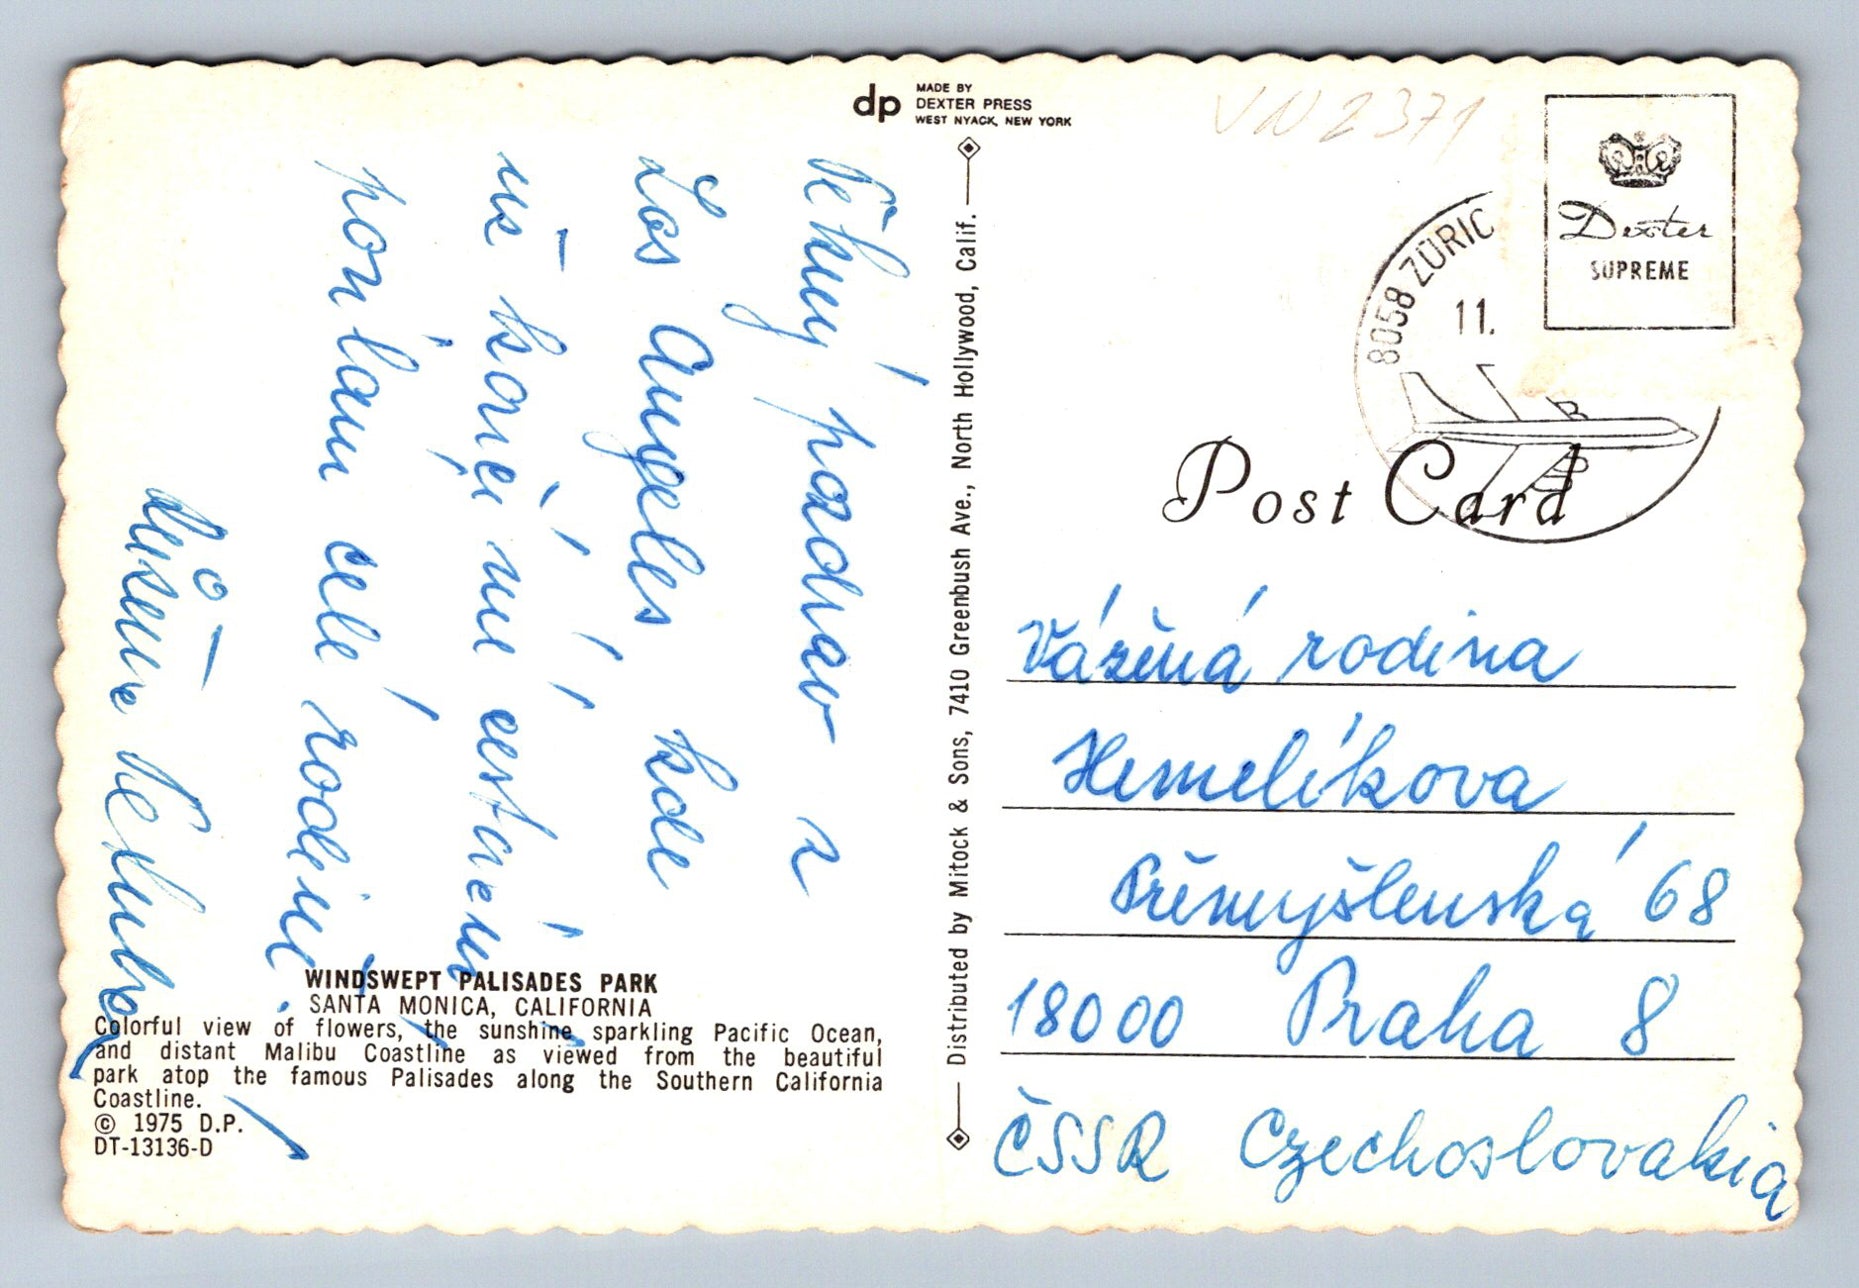 dp
MADE BY
DEXTER PRESS
WEST NYACK, NEW YORK
VN 2371
Dexter
SUPREME
8058 ZÜRIC
11.
Post Card
Distributed by Mitock & Sons, 7410 Greenbush Ave., North Hollywood, Calif.
Pěkný pozdrav z
Los Angeles kde
už končí mé cestování
posílám celé rodině
Růžena
Vážená rodina
Hemelíkova
Přemyšlenská 68
18000 Praha 8
ČSSR Czechoslovakia
WINDSWEPT PALISADES PARK
SANTA MONICA, CALIFORNIA
Colorful view of flowers, the sunshine sparkling Pacific Ocean,
and distant Malibu Coastline as viewed from the beautiful
park atop the famous Palisades along the Southern California
Coastline.
© 1975 D.P.
DT-13136-D